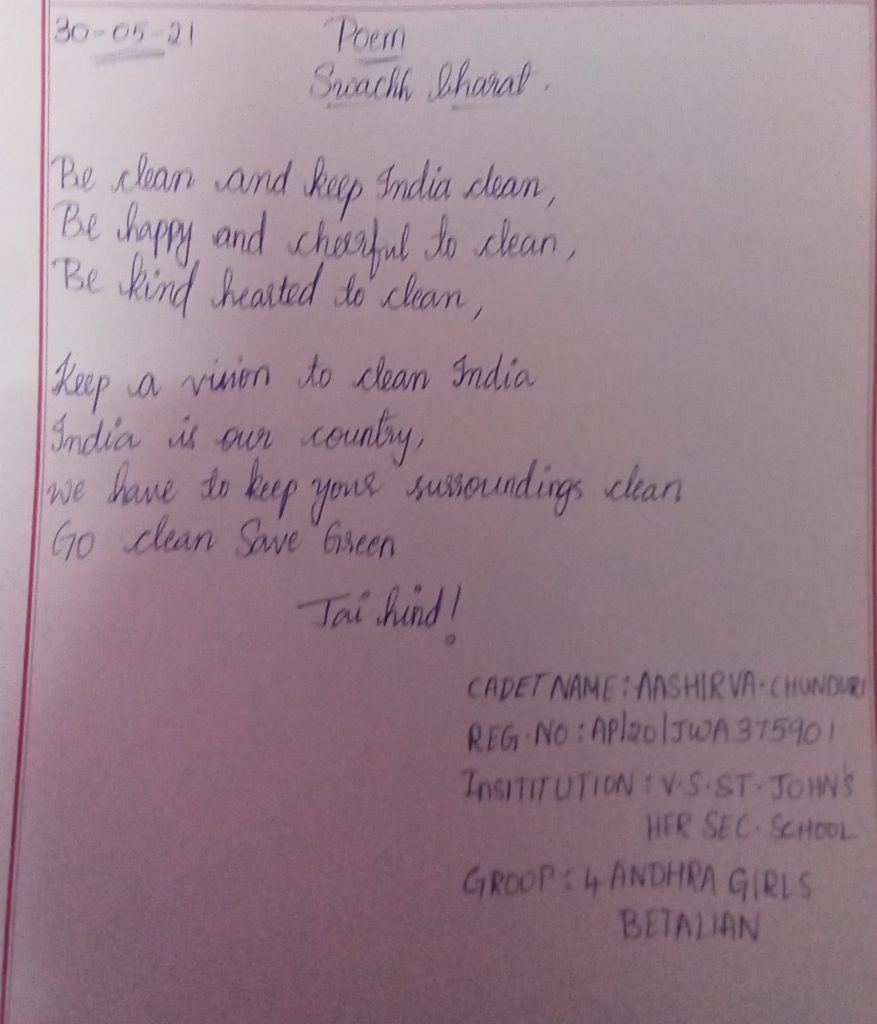 30-05-21 Poem
Swachh bharat.
Be clean and keep India clean,
Be happy and cheerful to clean,
Be kind hearted to clean,
Keep a vision to clean India
India is our country,
we have to keep your surroundings clean
Go clean Save Green
Jai hind!
CADET NAME: AASHIRVA. CHUNDURI
REG. NO: AP/20/JWA 375901
INSITITUTION: V.S. ST. JOHN'S
HER SEC. SCHOOL
GROOP: 4 ANDHRA GIRLS
BETALIAN